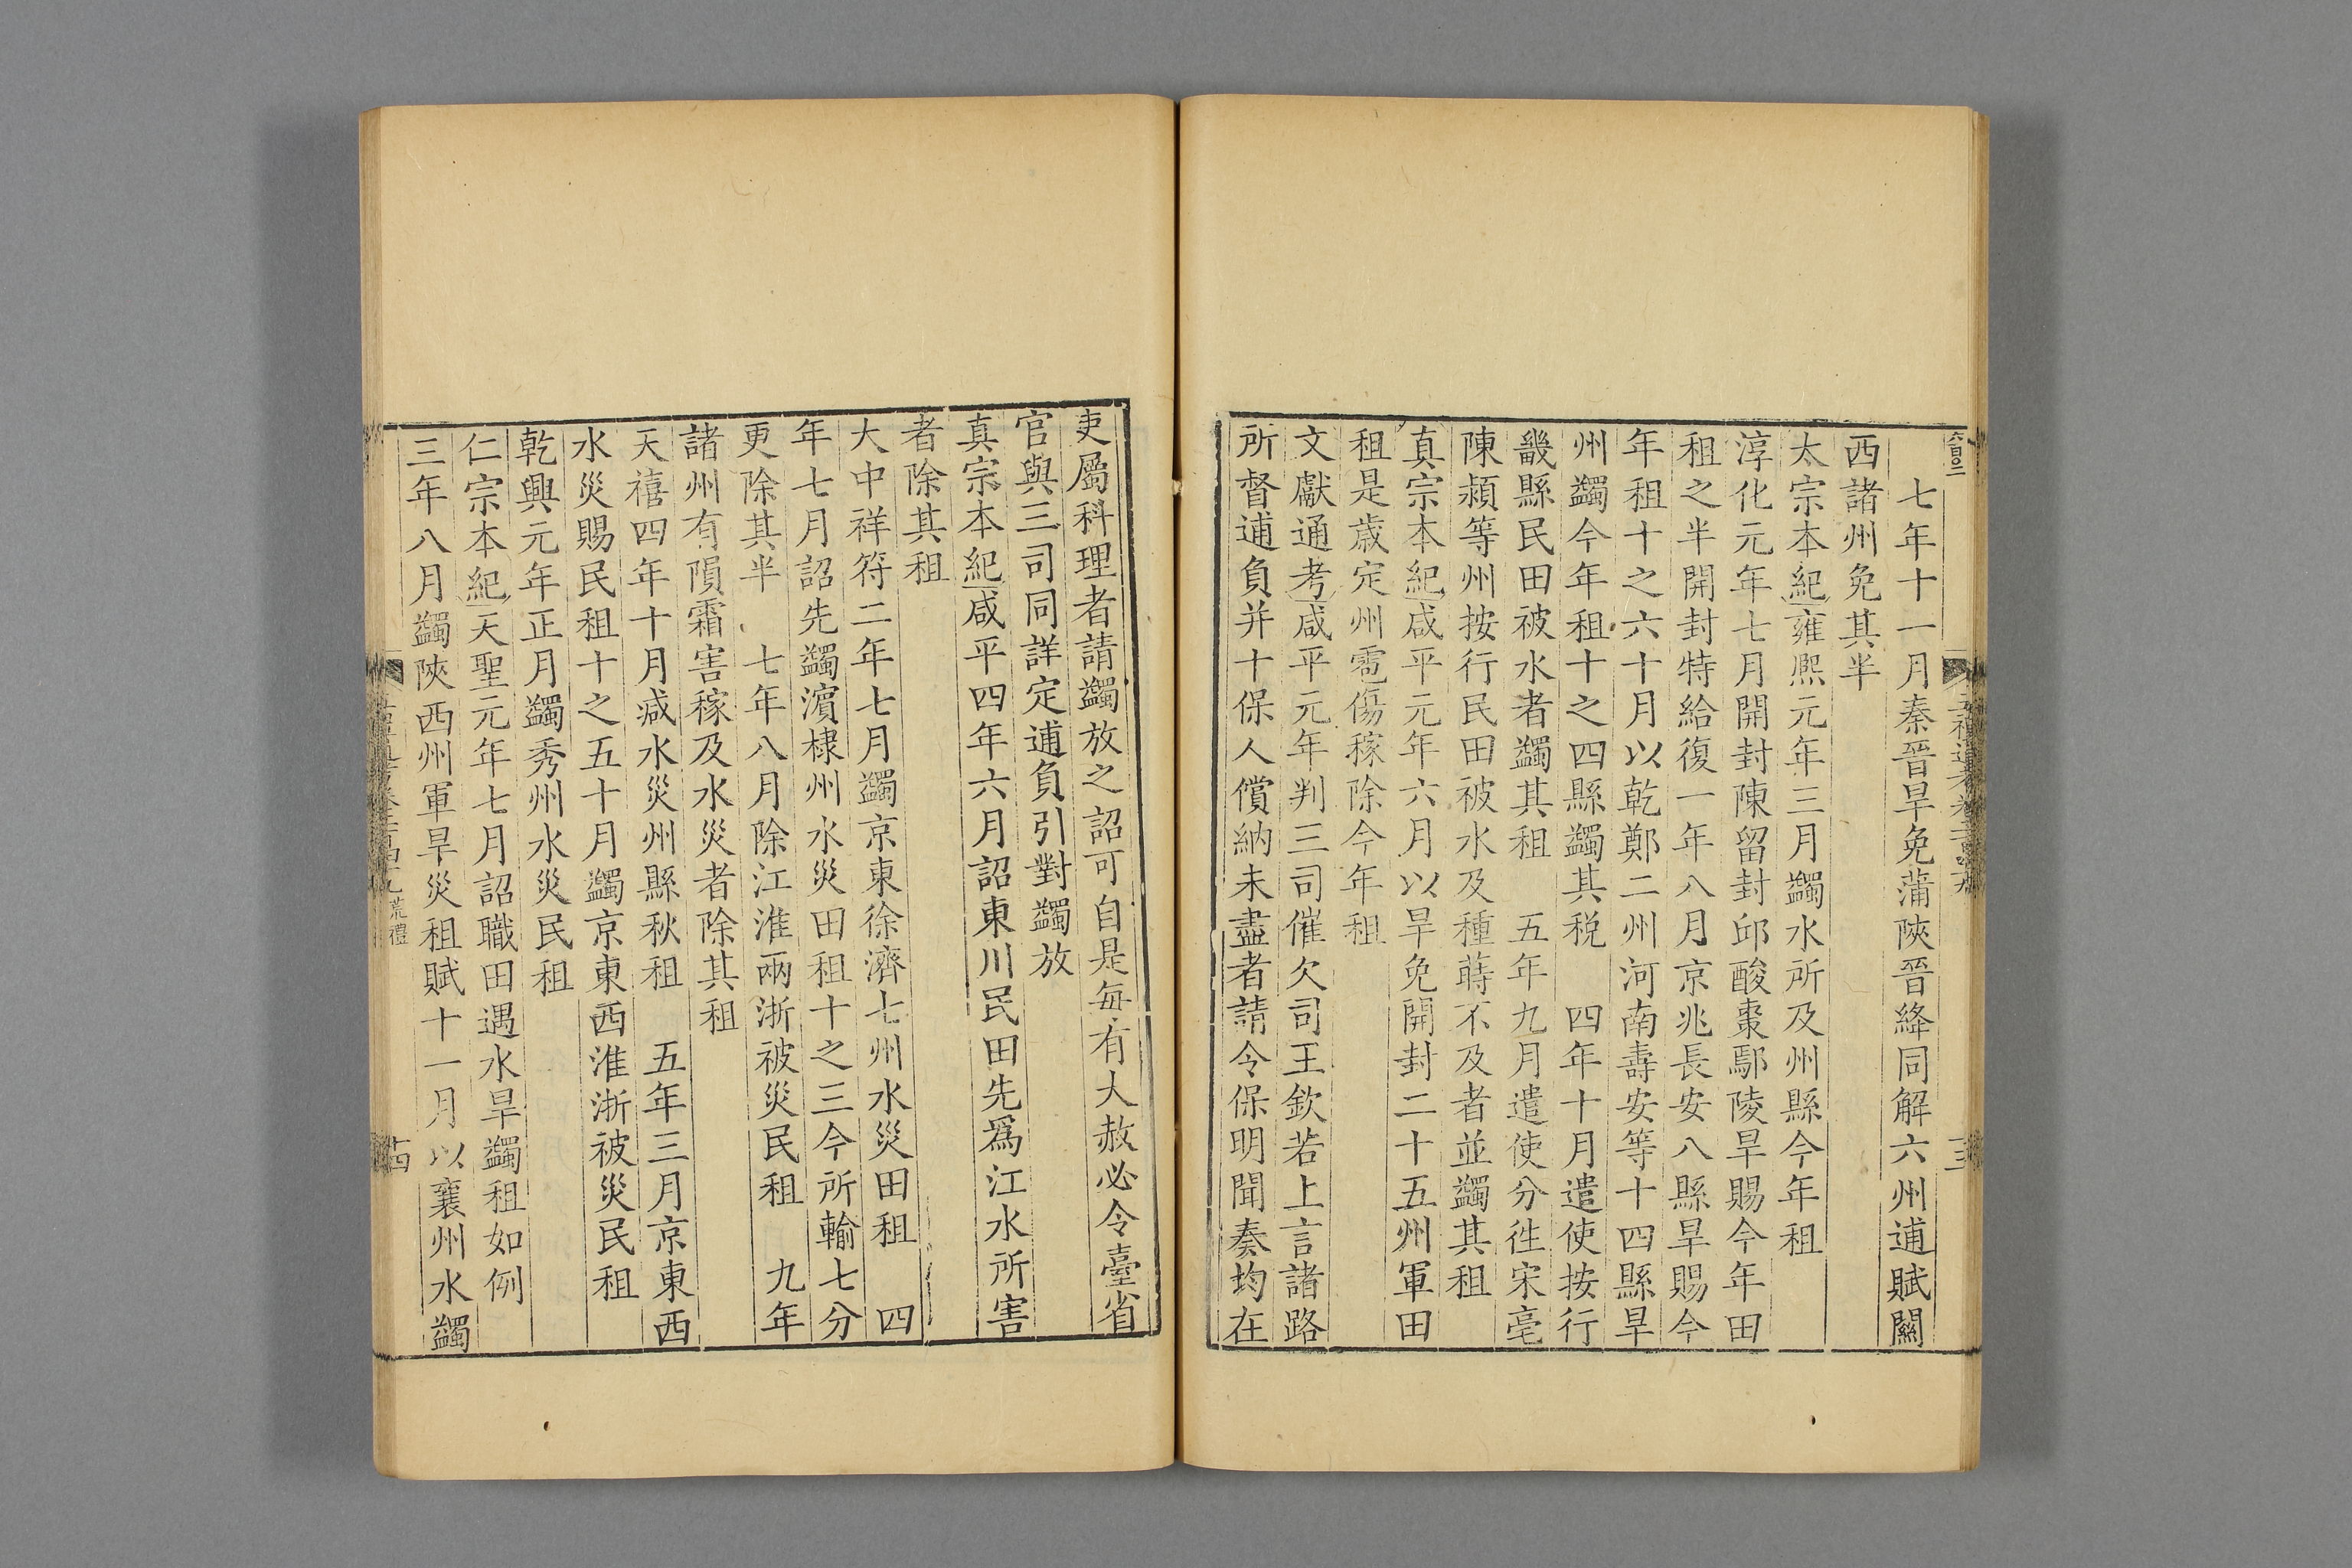 七年十一月秦晉旱免蒲陝晉絳同解六州逋賦關
西諸州免其半
太宗本紀雍熙元年三月蠲水所及州縣今年租
淳化元年七月開封陳留封邱酸棗鄢陵旱賜今年田
租之半開封特給復一年八月京兆長安八縣旱賜今
年租十之六十月以乾鄭二州河南壽安等十四縣旱
州蠲今年租十之四縣蠲其税　四年十月遣使按行
畿縣民田被水者蠲其租　五年九月遣使分徃宋亳
陳潁等州按行民田被水及種蒔不及者並蠲其租
真宗本紀咸平元年六月以旱免開封二十五州軍田
租是歳定州雹傷稼除今年租
文獻通考咸平元年判三司催欠司王欽若上言諸路
所督逋負并十保人償納未盡者請令保明聞奏均在
吏屬科理者請蠲放之詔可自是每有大赦必令臺省
官與三司同詳定逋負引對蠲放
真宗本紀咸平四年六月詔東川民田先爲江水所害
者除其租
大中祥符二年七月蠲京東徐濟七州水災田租　四
年七月詔先蠲濵棣州水災田租十之三今所輸七分
更除其半　七年八月除江淮兩浙被災民租　九年
諸州有隕霜害稼及水災者除其租
天禧四年十月減水災州縣秋租　五年三月京東西
水災賜民租十之五十月蠲京東西淮浙被災民租
乾興元年正月蠲秀州水災民租
仁宗本紀天聖元年七月詔職田遇水旱蠲租如例
三年八月蠲陝西州軍旱災租賦十一月以襄州水蠲
荒禮
十四